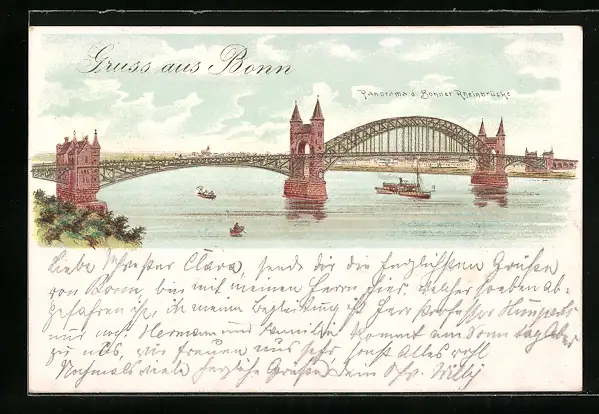 Gruss aus Bonn
Panorama d. Bonner Rheinbrücke
Liebe Schwester Clara, sende dir die herzlichsten Grüße
von Bonn, bin mit meinen Herrn hier, welcher soeben ab-
gefahren ist, in meine Begleitung ist Herr Professor
uns Hermann und Familie kommt am Sonntag Abend
zu uns, wir freuen uns sehr sonst Alles wohl
Nochmals viele herzliche Grüße dein Br. Willy